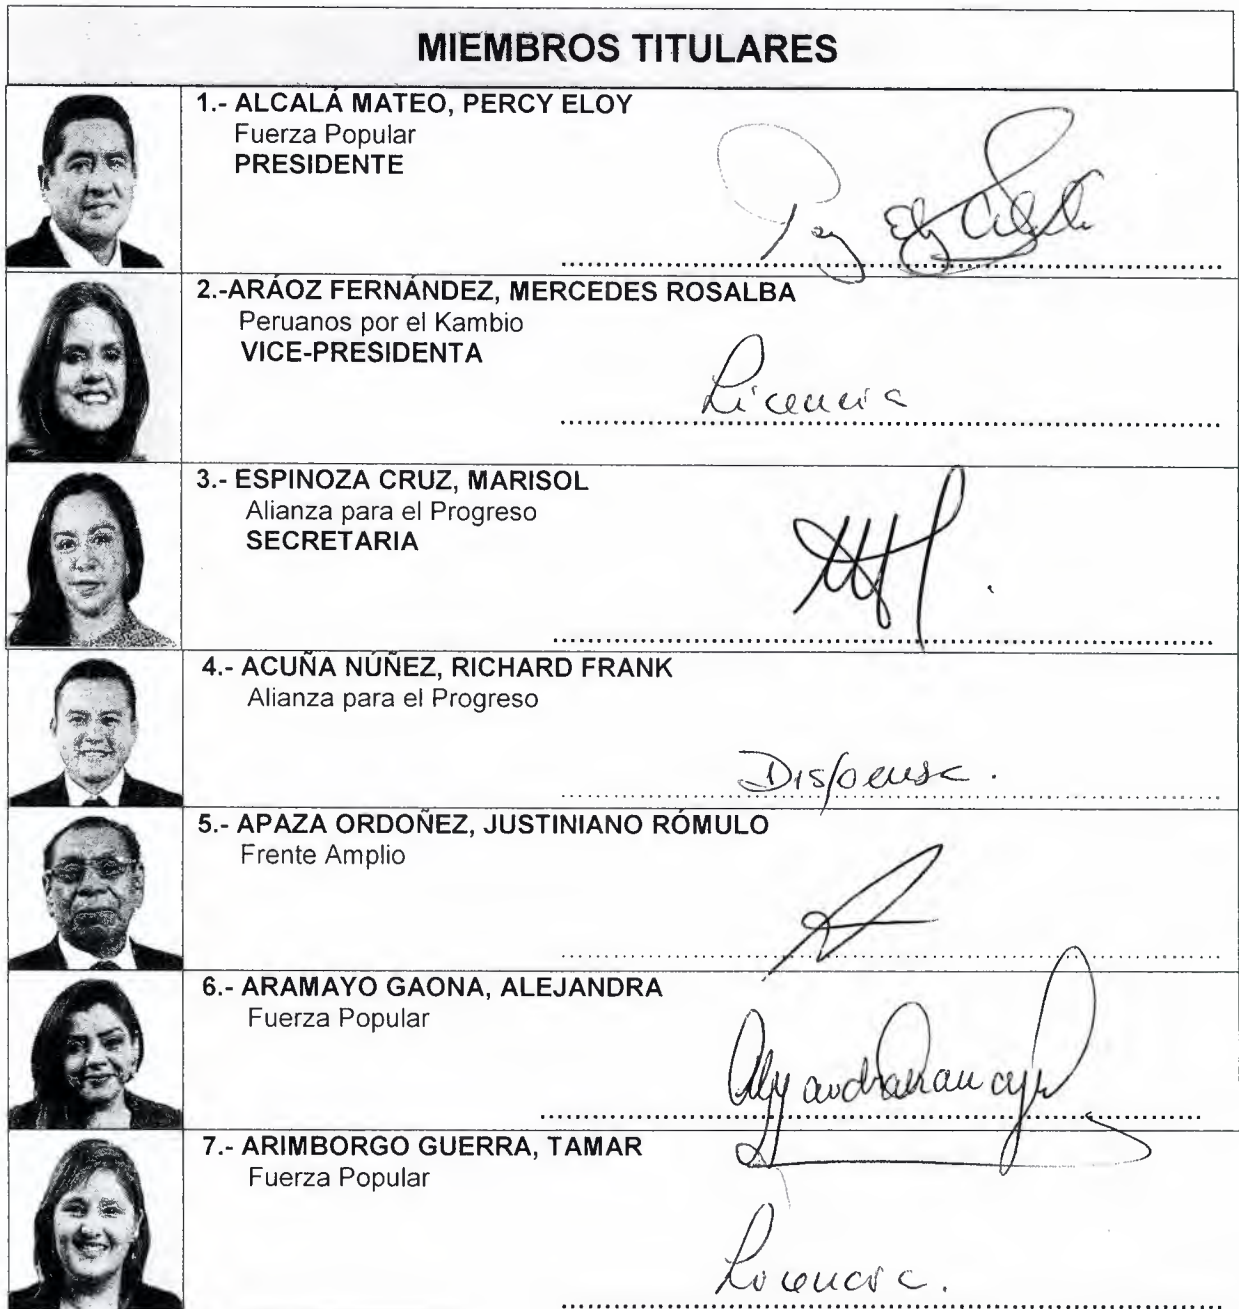 MIEMBROS TITULARES
1.- ALCALÁ MATEO, PERCY ELOY
Fuerza Popular
PRESIDENTE
2.-ARÁOZ FERNÁNDEZ, MERCEDES ROSALBA
Peruanos por el Kambio
VICE-PRESIDENTA
Licencia
3.- ESPINOZA CRUZ, MARISOL
Alianza para el Progreso
SECRETARIA
4.- ACUÑA NÚÑEZ, RICHARD FRANK
Alianza para el Progreso
Dispensa.
5.- APAZA ORDOÑEZ, JUSTINIANO RÓMULO
Frente Amplio
6.- ARAMAYO GAONA, ALEJANDRA
Fuerza Popular
7.- ARIMBORGO GUERRA, TAMAR
Fuerza Popular
Licencia.